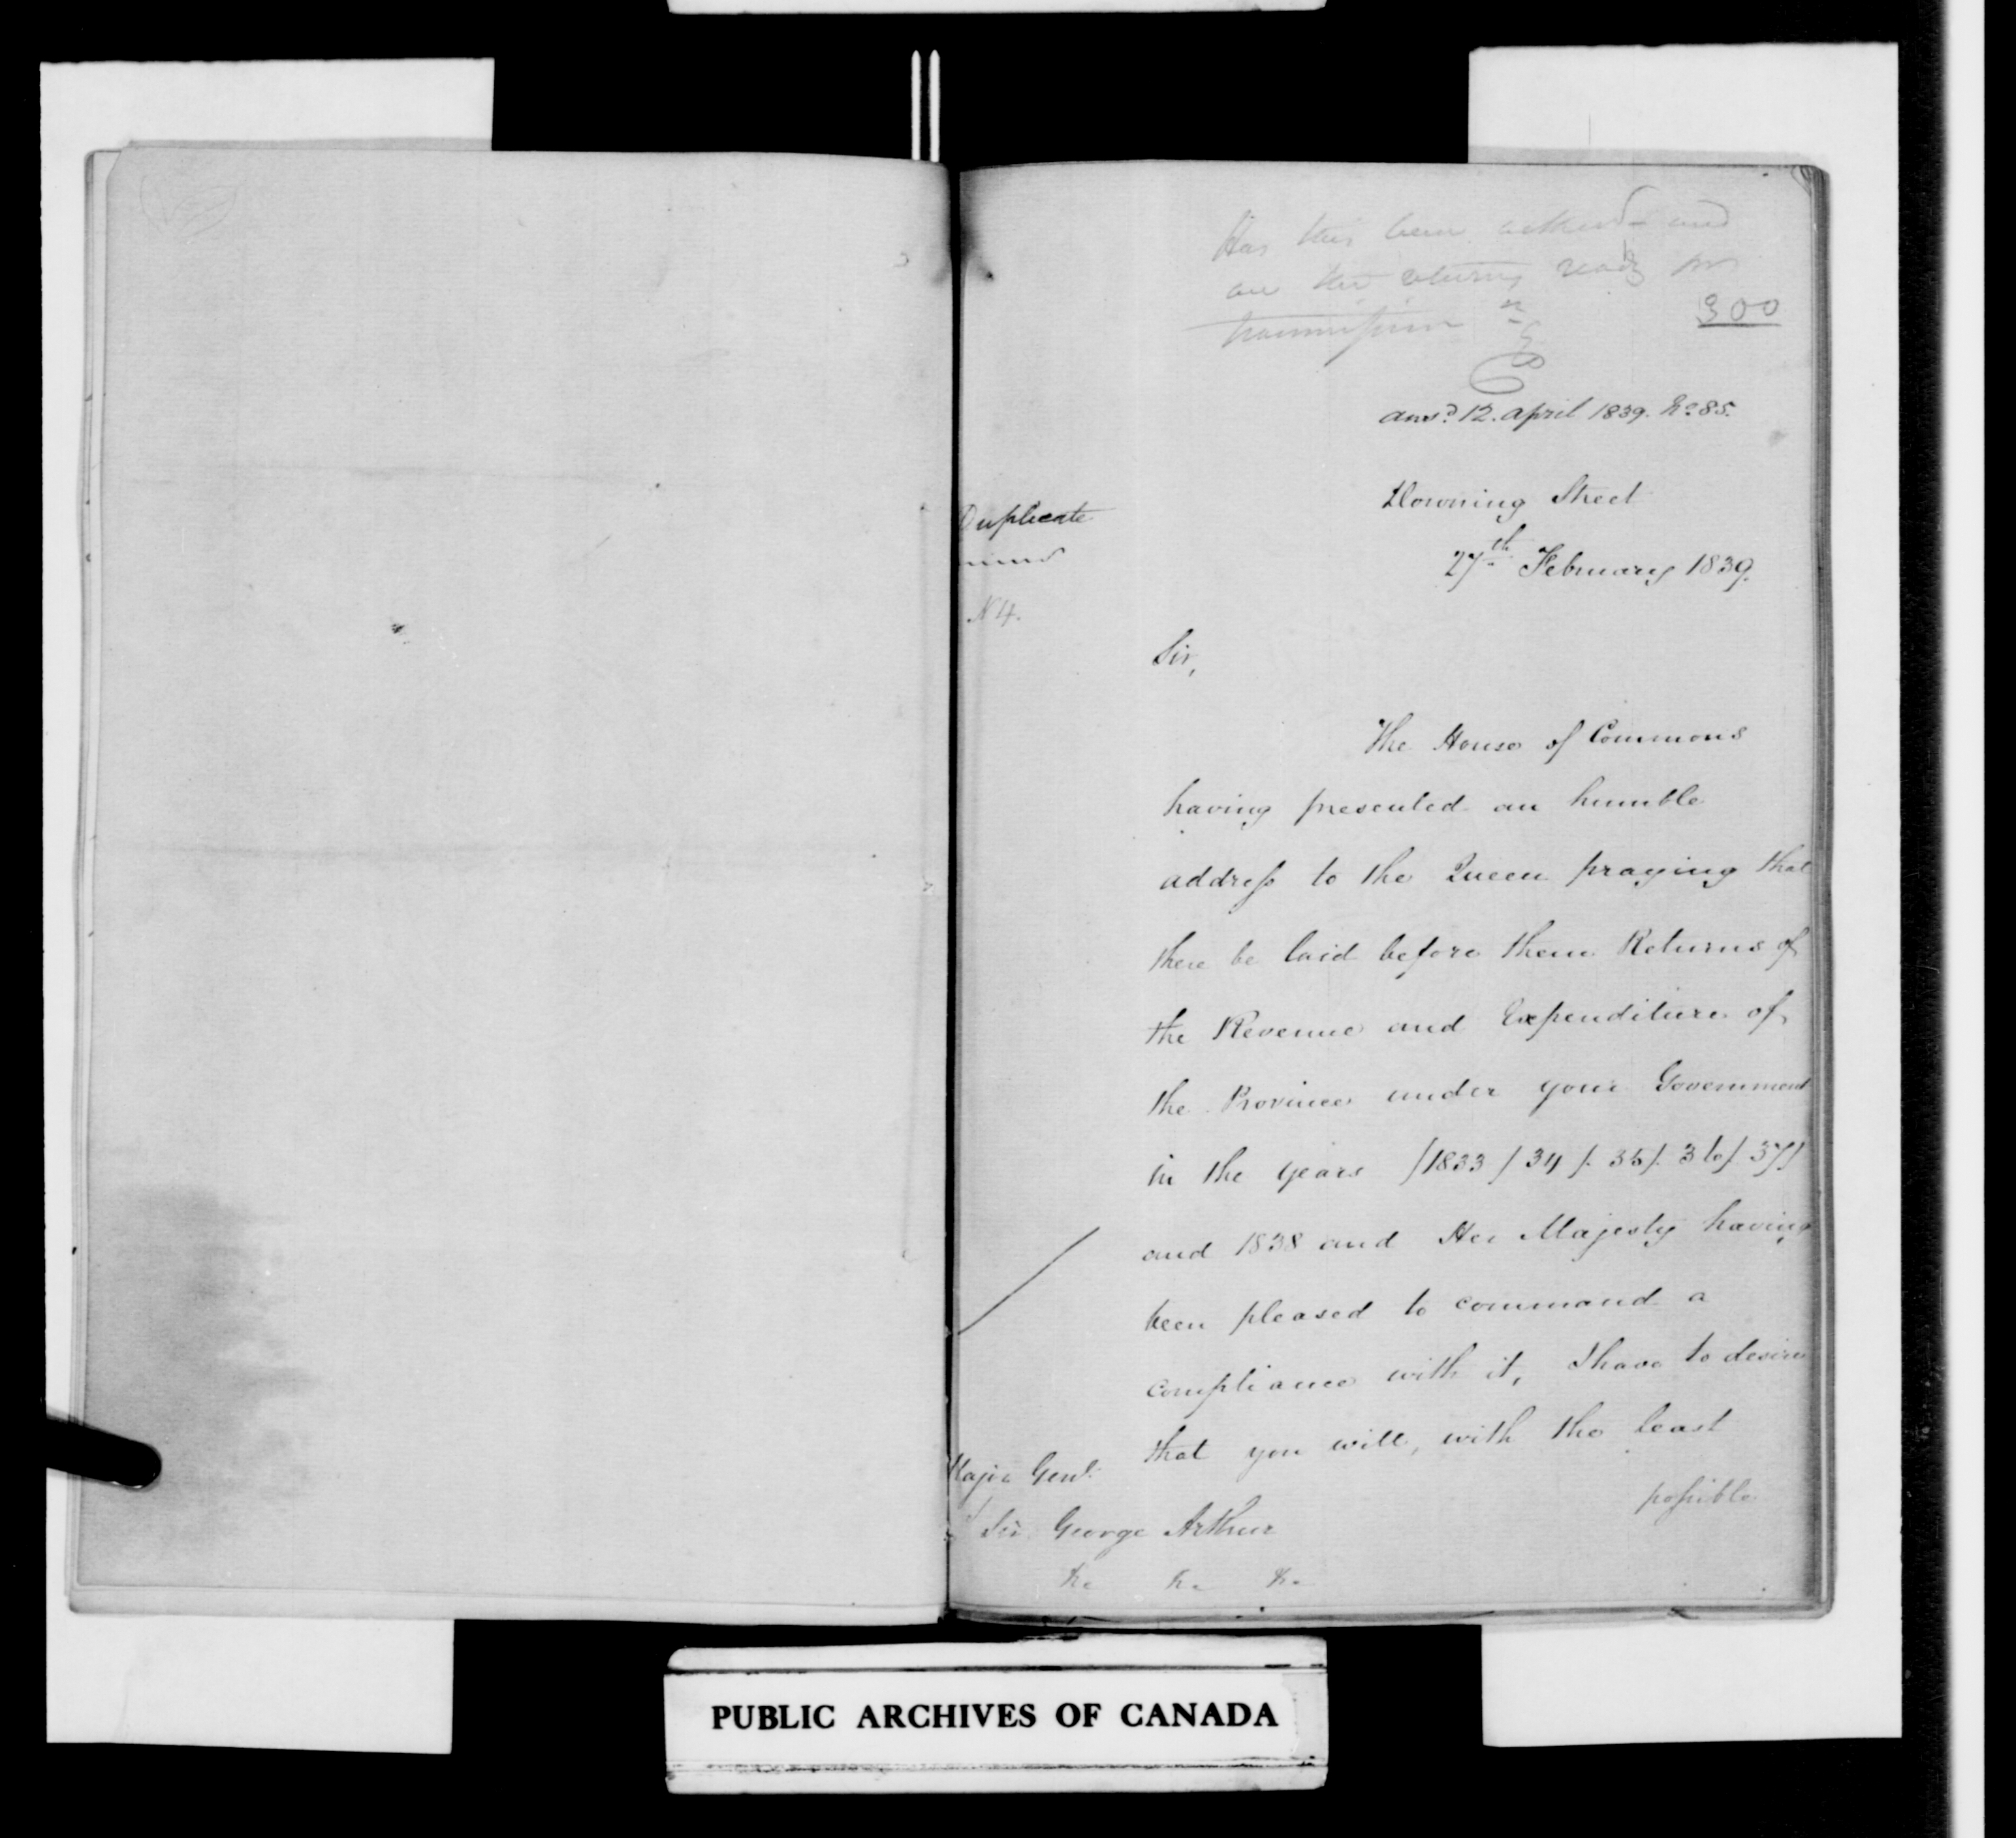 Has this been
are the returns ready for
transmission
300
ansd. 12. april 1839. No 85.
Downing Street
27th February 1839.
Duplicate
N 4.
Sir,
The House of Commons
having presented an humble
address to the Queen praying that
there be laid before them Returns of
the Revenue and Expenditure of
the Province under your Government
in the years /1833 / 34 /. 35 /. 36 /. 37//
and 1838 and Her Majesty having
been pleased to command a
compliance with it, I have to desire
that you will, with the least
possible
Major Genl.
Sir George Arthur
&c &c &c
PUBLIC ARCHIVES OF CANADA